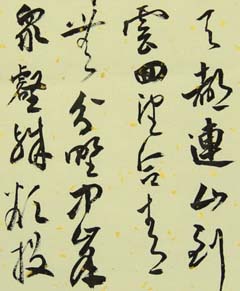 天都連山到
雲回望合青
無分野中峯
眾壑殊欲投